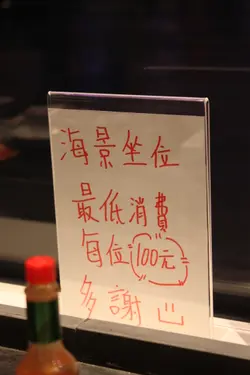 海景坐位
最低消費
每位100元
多謝